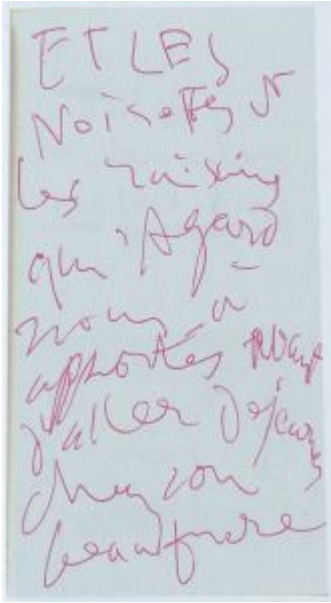 ET LES
Noisettes et
les raisins
qu'Agard
nous a
apportés avant
d'aller Déjeuner
chez son
beau frère